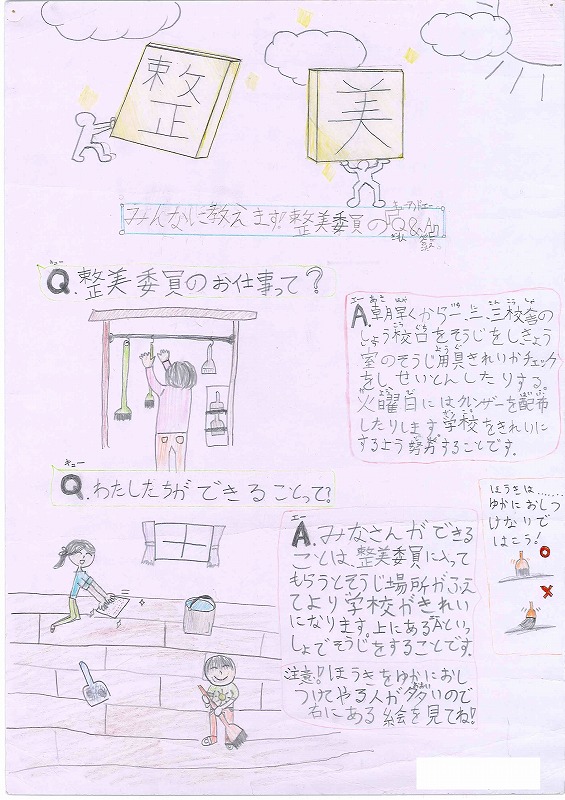 整
美
みんなに教えます!整美委員の『Q&A』
キュー アンド エー
Q.整美委員のお仕事って?
キュー
A.朝早くから一、二、三校舎の
しょう校口をそうじをしきょう
室のそうじ用具きれいかチェック
をし、せいとんしたりする。
火曜日にはクレンザーを配布
したりします学校をきれいに
するよう努力することです。
キュー
Q.わたしたちができることって?
エー
A.みなさんができる
ことは、整美委員に入って
もらうとそうじ場所がふえ
てより学校がきれい
になります。上にあるAといっ
しょでそうじをすることです。
注意!ほうきをゆかにおし
つけてやる人が多いので
右にある絵を見てね!
ほうきは……
ゆかにおしつ
けないで
はこう!